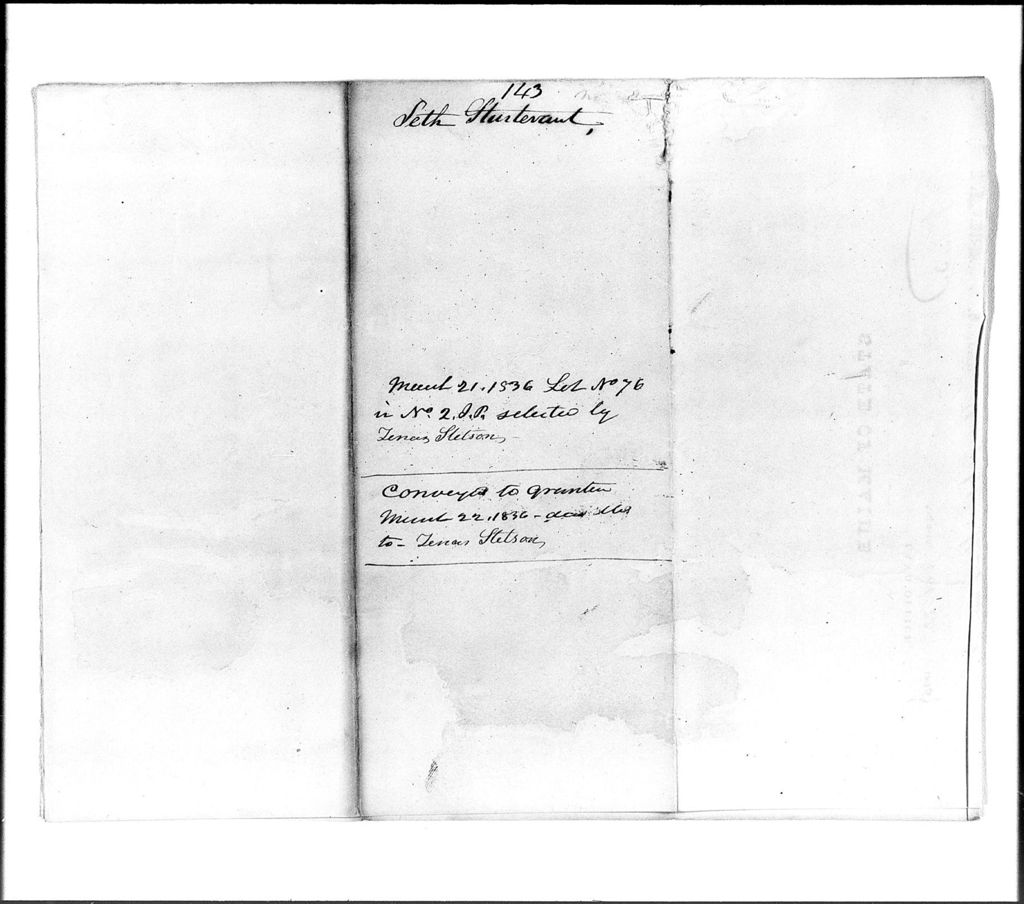 143
Seth Sturtevant,
March 21. 1836 Lot No 76
in No. 2. I.P. selected by
Zenas Stetson,
Conveyed to grantee
March 22. 1836 -
to - Zenas Stetson,
STATE OF MAINE